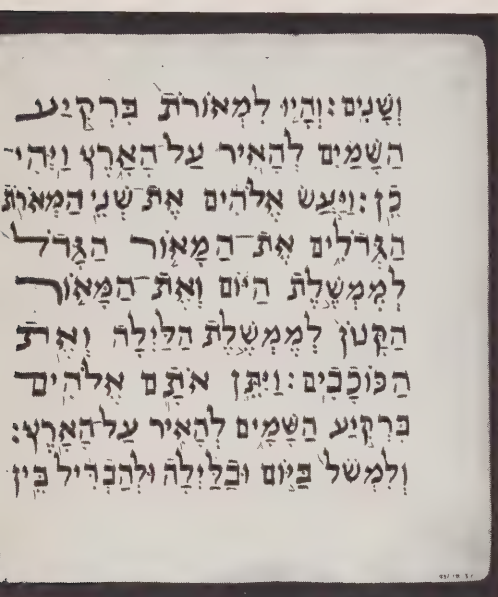 וְשָׁנִים׃ וְהָיוּ לִמְאוֹרֹת בִּרְקִיעַ
הַשָּׁמַיִם לְהָאִיר עַל־הָאָרֶץ וַיְהִי־
כֵן׃ וַיַּעַשׂ אֱלֹהִים אֶת־שְׁנֵי הַמְּאֹרֹת
הַגְּדֹלִים אֶת־הַמָּאוֹר הַגָּדֹל
לְמֶמְשֶׁלֶת הַיּוֹם וְאֶת־הַמָּאוֹר
הַקָּטֹן לְמֶמְשֶׁלֶת הַלַּיְלָה וְאֵת
הַכּוֹכָבִים׃ וַיִּתֵּן אֹתָם אֱלֹהִים
בִּרְקִיעַ הַשָּׁמָיִם לְהָאִיר עַל־הָאָרֶץ׃
וְלִמְשֹׁל בַּיּוֹם וּבַלַּיְלָה וּלְהַבְדִּיל בֵּין